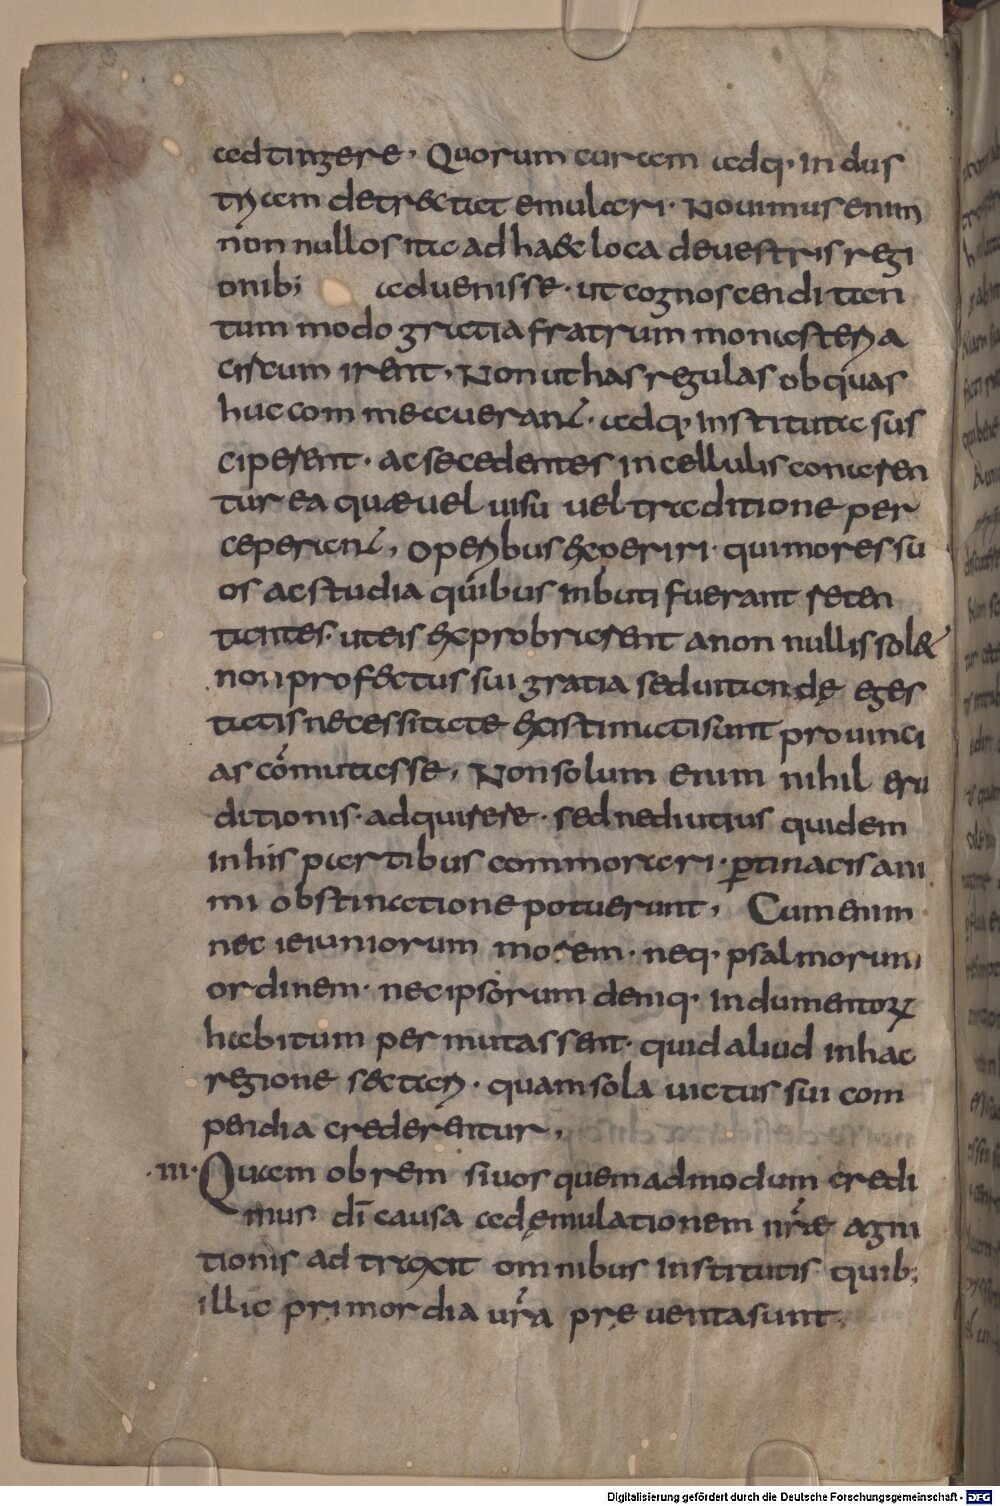 adtingere. Quorum curam adq; indus
triam detrectat emulari. Nouimus enim
nonnullos ita ad haec loca de uestris regi
onib; aduenisse. ut cognoscendi tan
tum modo gratia fratrum monasteria
circum irent. Non ut has regulas ob quas
huc commeauerant. adq; instituta sus
ciperent. ac secedentes in cellulis conaren
tur ea quæ uel uisu uel traditione per
ceperant, operibus experiri. qui mores su
os ac studia quibus inbuti fuerant reten
tantes. ut eis exprobrarent a non nullis sol&
non profectus sui gratia sed uitandę eges
tatis necessitate existimati sunt prouinci
as cōmutasse, Non solum enim nihil eru
ditionis. adquirere. sed ne diutius quidem
in his partibus commorari. ꝑtinacis ani
mi obstinatione potuerunt, Cum enim
nec ieiuniorum morem. neq; psalmorum
ordinem. nec ipsorum deniq; indumentoꝝ
habitum permutassent. quid aliud in hac
regione sectari. quam sola uictus sui com
pendia crederentur,
.III. Quam ob rem si uos quemadmodum credi
mus dī causa ad ęmulationem nr̄æ agni
tionis adtraxit omnibus institutis quib;
illic primordia ur̄a pręuenta sunt.
Digitalisierung gefördert durch die Deutsche Forschungsgemeinschaft - DFG